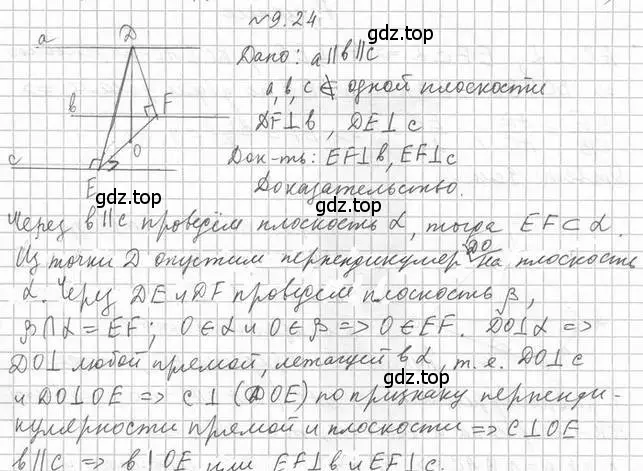 №9.24
gdz.top
a D Дано: a∥b∥c
a, b, c ⊄ одной плоскости
gdz.top
b F DF⊥b, DE⊥c
O
c E Док-ть: EF⊥b, EF⊥c
gdz.top gdz.top
Доказательство.
Через b∥c проведём плоскость α, тогда EF⊂α.
Из точки D опустим перпендикуляр DO на плоскость
gdz.top
α. Через DE и DF проведем плоскость β,
β∩α = EF; O∈α и O∈β => O∈EF. DO⊥α =>
DO⊥ любой прямой, лежащей в α, т.е. DO⊥c
gdz.top
и DO⊥OE => c⊥(DOE) по признаку перпенди-
кулярности прямой и плоскости => c⊥OE
gdz.top
b∥c => b⊥OE или EF⊥b и EF⊥c.